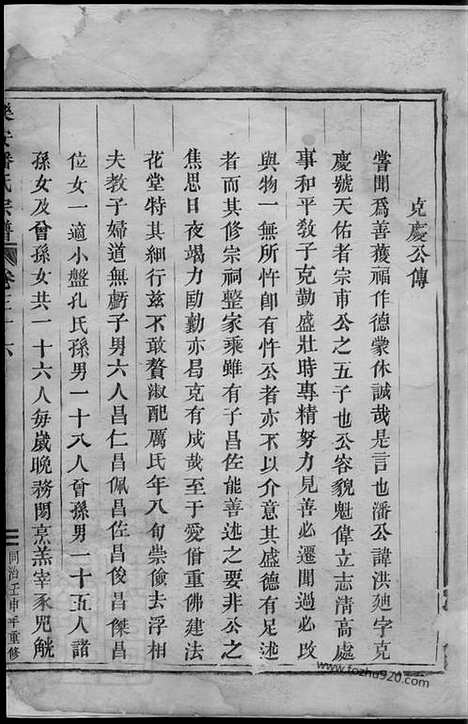 克慶公傳
嘗聞爲善獲福作德蒙休誠哉是言也潘公諱洪廸字克
慶號天佑者宗甫公之五子也公容貌魁偉立志清高處
事和平敎子克勤盛壯時專精努力見善必遷聞過必改
與物一無所忤卽有忤公者亦不以介意其盛德有足述
者而其修宗祠整家乘雖有子昌佐能善述之要非公之
焦思日夜竭力勖勤亦曷克有成哉至于愛僧重佛建法
花堂特其細行茲不敢贅淑配厲氏年八旬崇儉去浮相
夫教子婦道無虧子男六人昌仁昌佩昌佐昌俊昌傑昌
位女一適小盤孔氏孫男一十八人曾孫男一十五人諸
孫女及曾孫女共一十六人每歲晚務閒烹羔宰豕兕觥
潘氏宗譜 卷三十六
同治壬申年重修
www.fozhu920.com